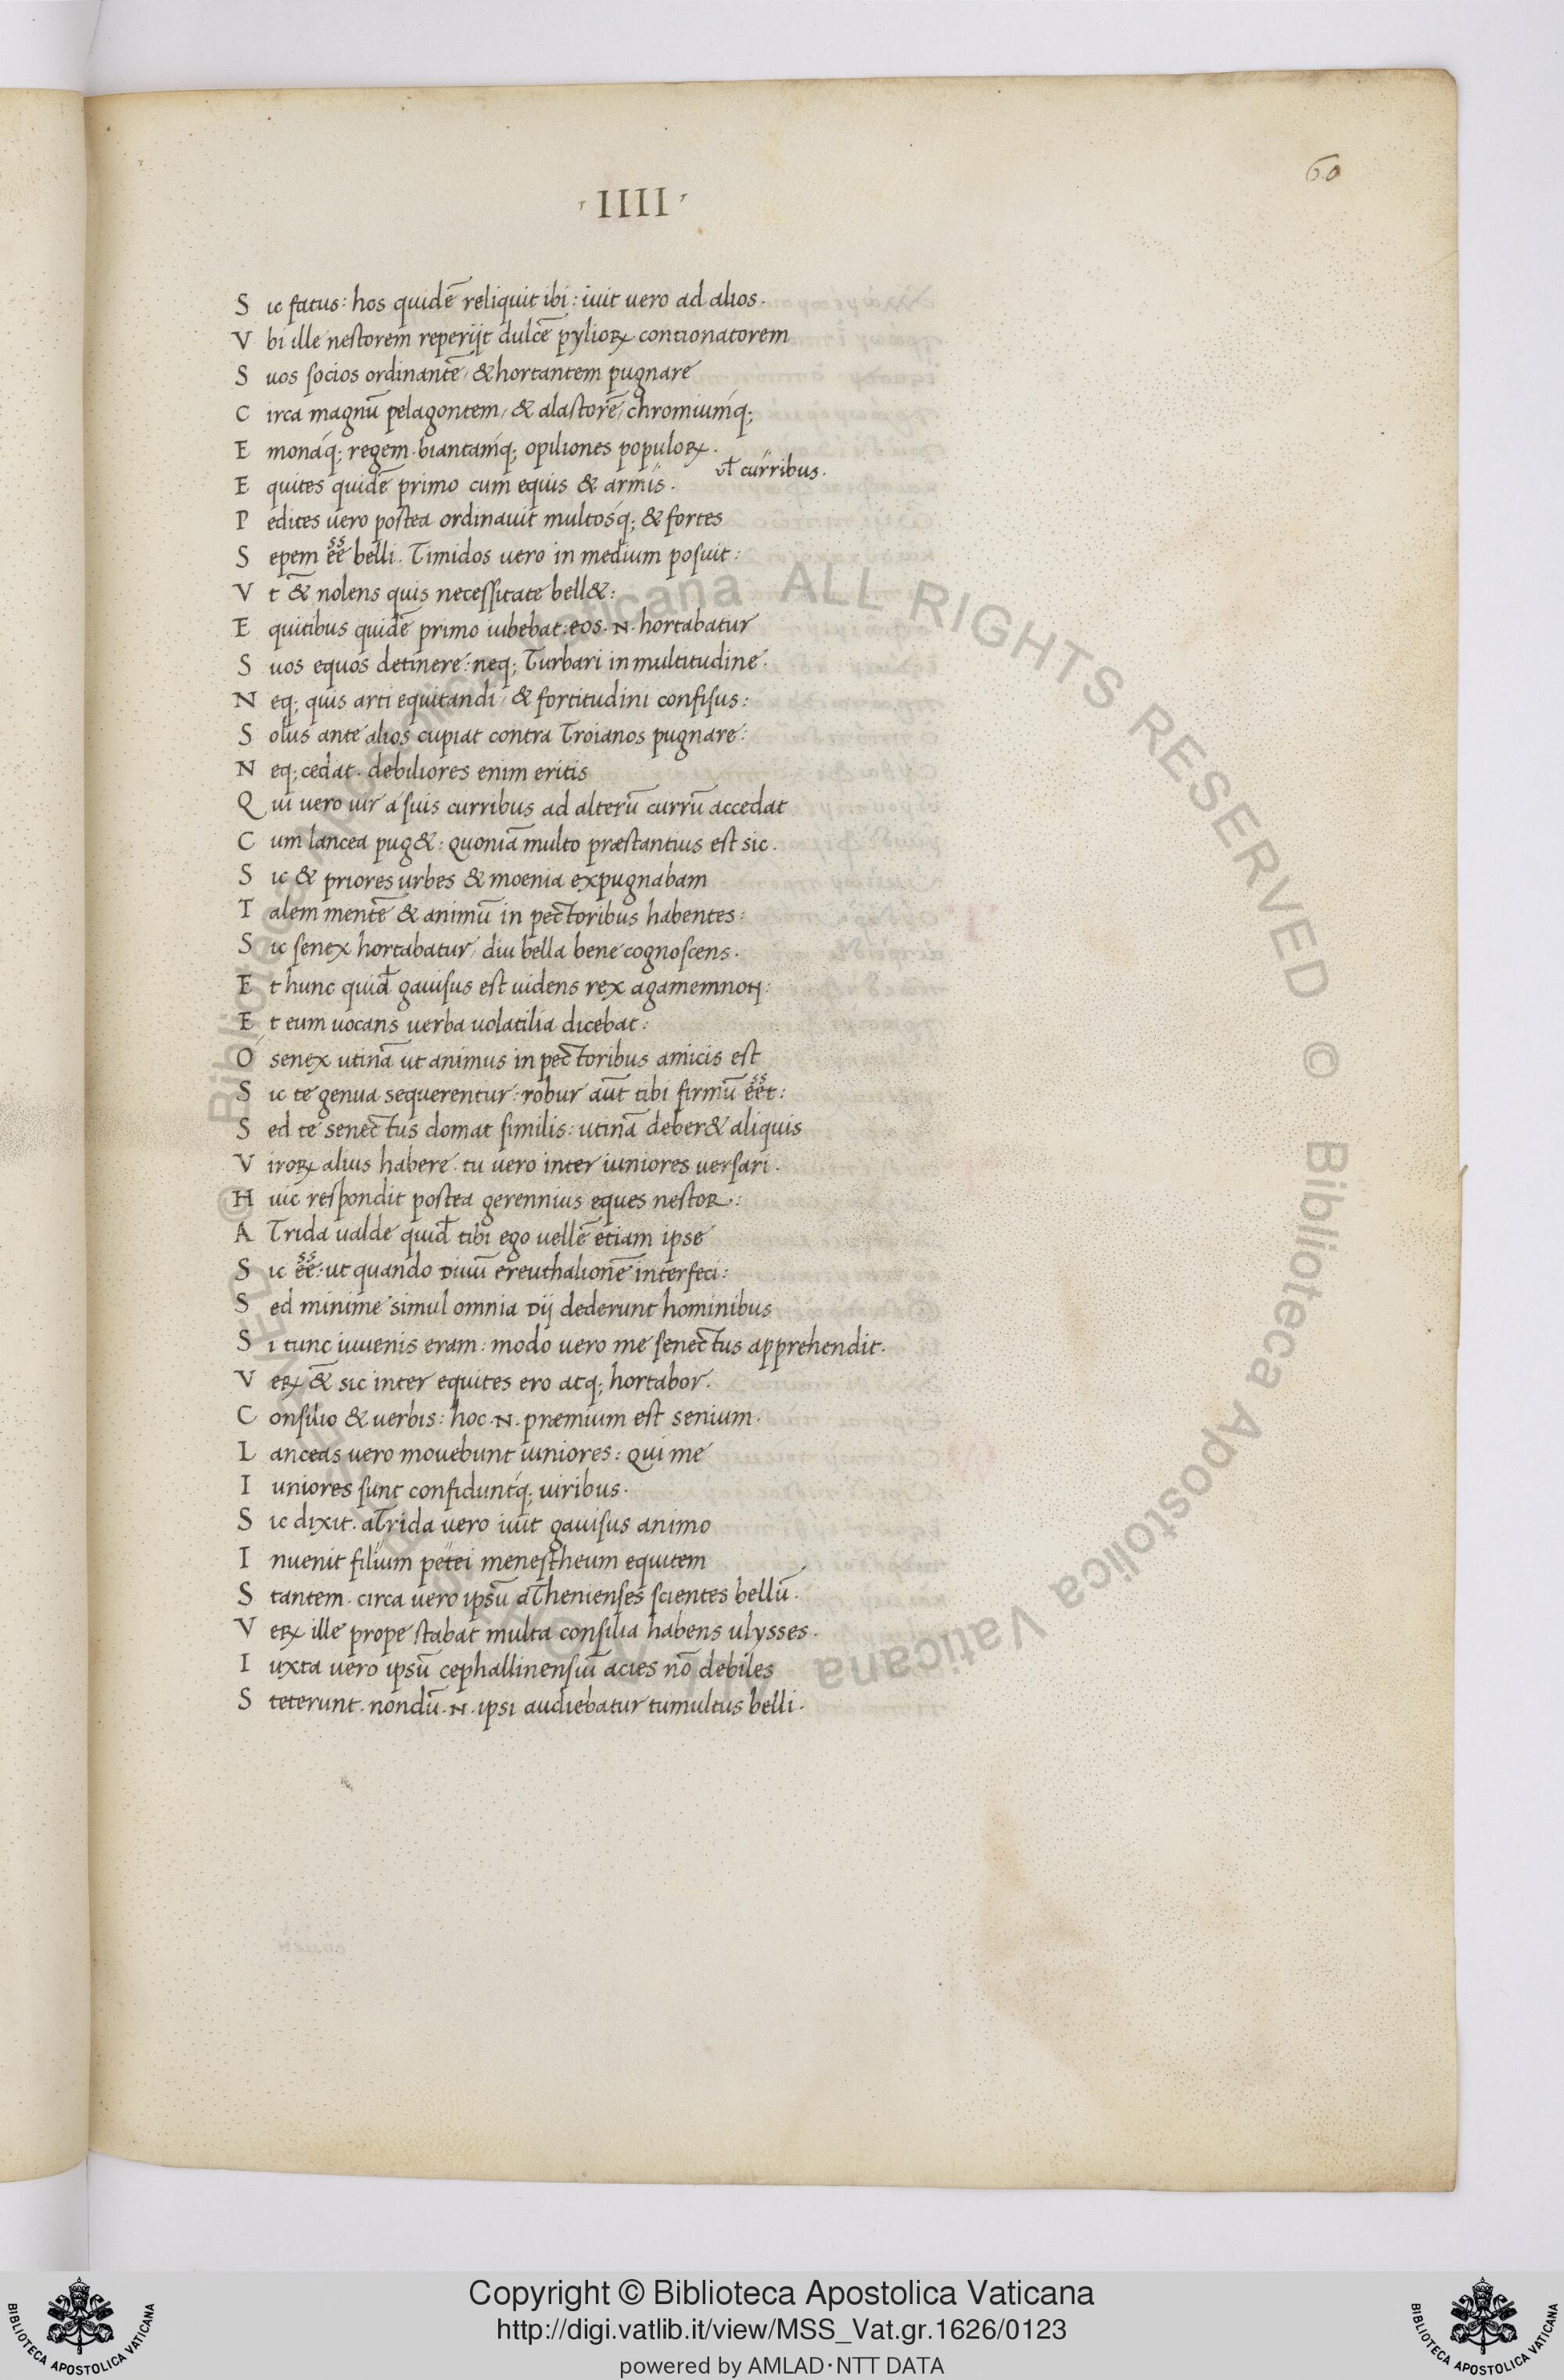 60
· IIII ·
S ic fatus: hos quidē reliquit ibi: iuit uero ad alios.
V bi ille nestorem reperijt dulcē pylioꝝ contionatorem
S uos socios ordinantē / & hortantem pugnare
C irca magnū pelagontem / & alastorē / chromiumq́;
E monaq́; regem. biantamq́; opiliones populoꝝ.
vƚ curribus.
E quites quidē primo cum equis & armis.
P edites uero postea ordinauit multosq́; & fortes
S epem ēē belli. Timidos uero in medium posuit:
V t & nolens quis necessitate bell&:
E quitibus quidē primo iubebat: eos. N. hortabatur
S uos equos detinere: neq; Turbari in multitudine.
N eq; quis arti equitandi / & fortitudini confisus:
S olus ante alios cupiat contra Troianos pugnare:
N eq; cedat. debiliores enim eritis
Q ui uero uir a suis curribus ad alterū currū accedat
C um lancea pug&: quoniā multo præstantius est sic.
S ic & priores urbes & moenia expugnabam
T alem mentē & animū in pectoribus habentes:
S ic senex hortabatur / diu bella bene cognoscens.
E t hunc quiđ gauisus est uidens rex agamemnon:
E t eum uocans uerba uolatilia dicebat:
O senex utinā ut animus in pectoribus amicis est
S ic te genua sequerentur: robur aūt tibi firmū ēēt:
S ed te senectus domat similis: utinā deber& aliquis
V iroꝝ alius habere. tu uero inter iuniores uersari.
H uic respondit postea gerennius eques nestor:
A Trida ualde quiđ tibi ego uellē etiam ipse
S ic ēē: ut quando diuū ereuthalionē interfeci:
S ed minime simul omnia dij dederunt hominibus
S i tunc iuuenis eram: modo uero me senectus apprehendit.
V eꝝ & sic inter equites ero atq; hortabor.
C onsilio & uerbis: hoc. N. præmium est senium.
L anceas uero mouebunt iuniores: qui me
I uniores sunt confiduntq́; uiribus.
S ic dixit. aTrida uero iuit gauisus animo
I nuenit filium petei menestheum equitem
S tantem. circa uero ipsū aThenienses scientes bellū.
V eꝝ ille prope stabat multa consilia habens ulysses.
I uxta uero ipsū cephallinensiū acies nō debiles
S teterunt. nondū. N. ipsi audiebatur tumultus belli.
© Biblioteca Apostolica Vaticana ALL RIGHTS RESERVED © Biblioteca Apostolica Vaticana
Copyright © Biblioteca Apostolica Vaticana
http://digi.vatlib.it/view/MSS_Vat.gr.1626/0123
powered by AMLAD·NTT DATA
BIBLIOTECA APOSTOLICA VATICANA
BIBLIOTECA APOSTOLICA VATICANA